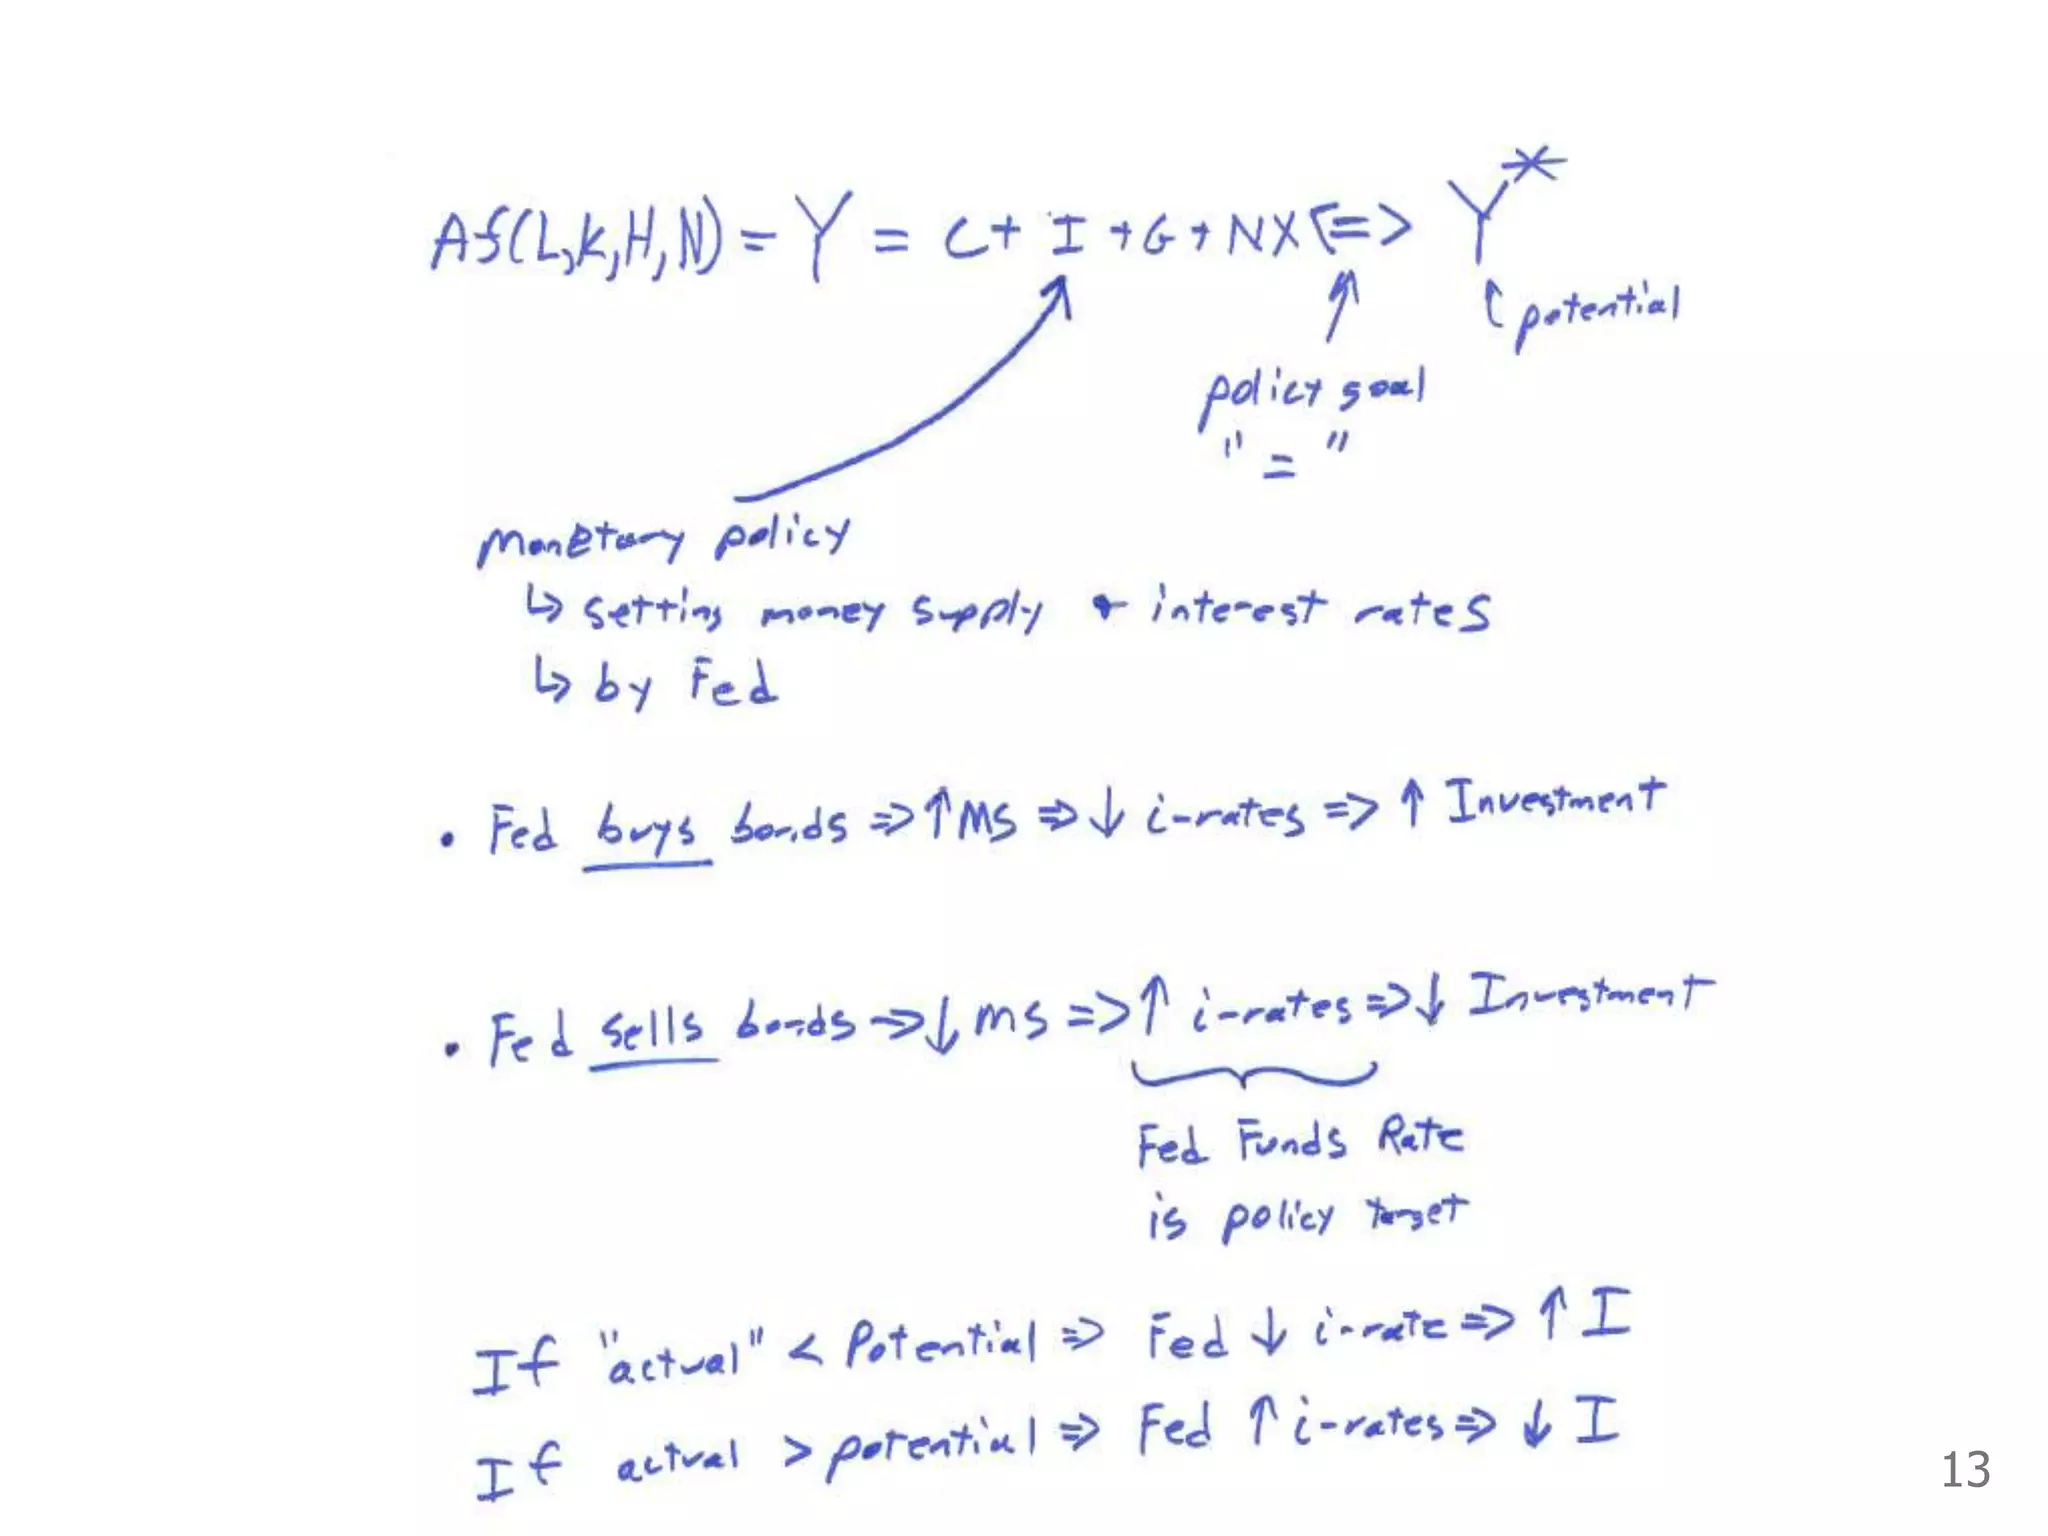 Af(L,K,H,N) = Y = C + I + G + NX <=> Y*
potential
policy goal
" = "
Monetary policy
↳ setting money supply + interest rates
↳ by Fed
• Fed buys bonds => ↑ MS => ↓ i-rates => ↑ Investment
• Fed sells bonds => ↓ MS => ↑ i-rates => ↓ Investment
Fed Funds Rate
is policy target
If "actual" < Potential => Fed ↓ i-rate => ↑ I
If actual > potential => Fed ↑ i-rates => ↓ I
13